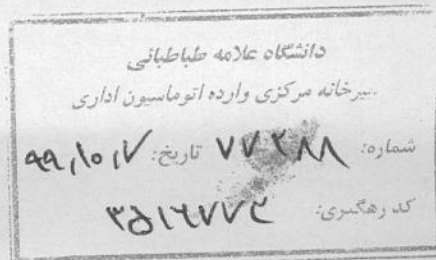 دانشگاه علامه طباطبائی
دبیرخانه مرکزی وارده اتوماسیون اداری
شماره: ۷۷۲۸۸ تاریخ: ۹۹٫۱۰٫۷
کد رهگیری: ۳۵۱۶۷۷۲